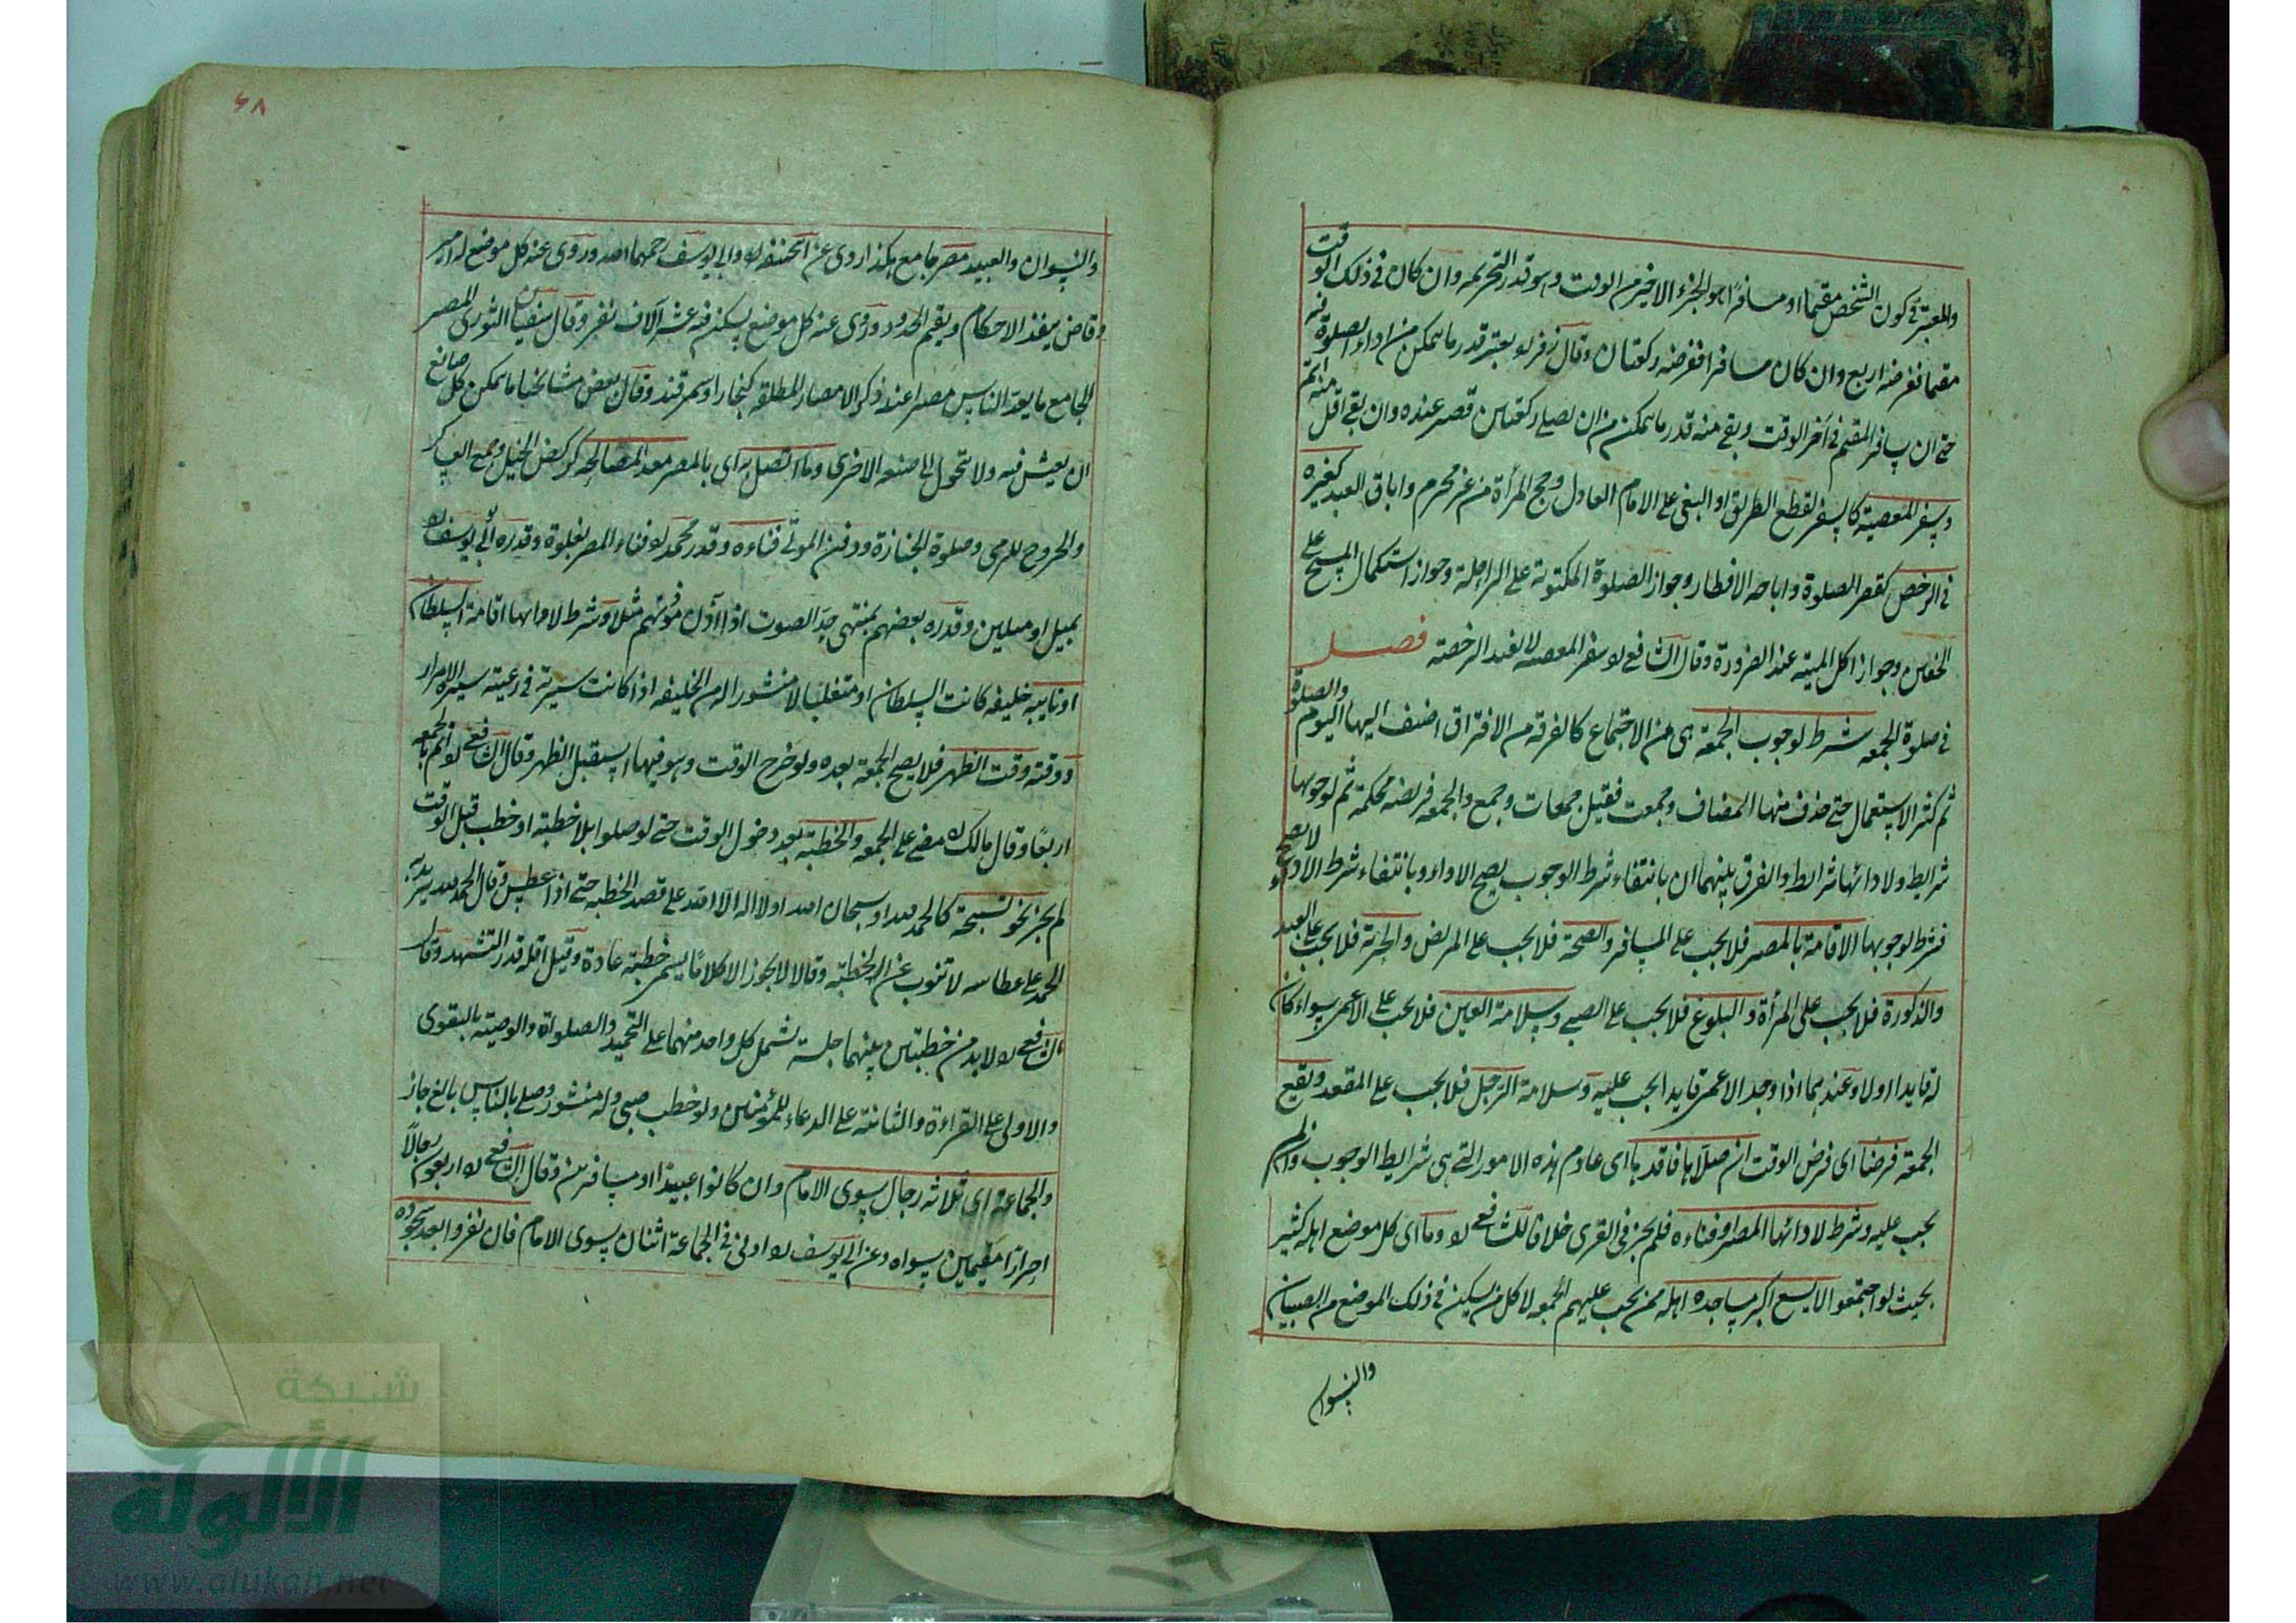 والمعتبر في كون الشخص مقيما او مسافرا هو الجزء الاخير من الوقت وهو قدر التحريمه وان كان في ذلك الوقت
مقيما ففرضه اربع وان كان مسافرا ففرضه ركعتان وقال زفر ره يعتبر قدر ما يمكن من اداء الصلوة فيه
حتى ان سافر المقيم في آخر الوقت وبقى منه قدر ما يمكن من ان يصلى ركعتين قصر عنده وان بقى اقل منه اتم
وسفر المعصية كالسفر لقطع الطريق او البغى على الامام العادل وحج المرأة من غير محرم واباق العبد كغيره
في الرخص كقصر الصلوة واباحه الافطار وجواز الصلوة المكتوبة على الراحلة وجواز استكمال المسح على
الخفين وجواز اكل الميته عند الضرورة وقال الشافعي ره سفر المعصيه لا يفيد الرخصة فصل
في صلوة الجمعه شرط لوجوب الجمعة هى من الاجتماع كالفرقة من الافتراق اضيف اليها اليوم والصلوة
ثم كثر الاستعمال حتى حذف منها المضاف وجمعت فقيل جمعات وجمع والجمعه فريضه محكمة ثم لوجوبها
شرايط ولادائها شرايط والفرق بينهما ان بانتفاء شرط الوجوب يصح الاداء وبانتفاء شرط الاداء لا يصح
فشرط لوجوبها الاقامة بالمصر فلا يجب على المسافر والصحة فلا يجب على المريض والحرية فلا يجب على العبد
والذكورة فلا يجب على المرأة والبلوغ فلا يجب على الصبى وسلامة العين فلا يجب على الاعمى سواء كان
له قايد او لا وعندهما اذا وجد الاعمى قايدا يجب عليه وسلامة الرجل فلا يجب على المقعد ويقع
الجمعة فرضا اى فرض الوقت ان صلاها فاقدها اى عادم هذه الامور التى هى شرايط الوجوب وان لم
يجب عليه وشرط لادائها المصر او فناءه فلم يجز في القرى خلافا للشافعى ره وما اى كل موضع اهله كثير
بحيث لو اجتمعوا لا يسع اكبر مساجده اهله ممن يجب عليهم الجمعه لا كل من يسكن في ذلك الموضع من الصبيان
والنسوان
٦٨
والنسوان والعبيد مصر جامع هكذا روى عن ابى حنيفه ره وابى يوسف رحمهما الله وروى عنه كل موضع له امير
وقاض ينفذ الاحكام ويقيم الحدود وروى عنه كل موضع يسكن فيه عشر آلاف نفر وقال سفيان الثورى المصر
الجامع ما يعده الناس مصرا عند ذكر الامصار المطلقه كبخارا وسمرقند وقال بعض مشايخنا ما يمكن كل صانع
ان يعيش فيه ولا يتحول الى صنعه الاخرى وما اتصل به اى بالمصر معد المصالحه كركض الخيل وجمع العساكر
والخروج للرمى وصلوة الجنازة ودفن الموتى فناءه وقدر محمد ره فناء المصر بغلوة وقدره ابى يوسف ره
بميل او ميلين وقدره بعضهم بمنتهى حد الصوت اذا اذن مؤذنهم مثلا وشرط لادائها اقامة السلطان
او نايبه خليفه كانت السلطان او متغلبا لا منشور اله من الخليفه اذا كانت سيرته في رعيته سيرة الامراء
ووقته وقت الظهر فلا يصح الجمعة بعده ولو خرج الوقت وهو فيها استقبل الظهر وقال الشافعى ره اتم الجمعه
اربعا وقال مالك ره مضى على الجمعه والخطبة بعد دخول الوقت حتى لو صلوا بلا خطبة او خطب قبل الوقت
لم يجز نحو تسبيحة كالحمد لله او سبحان الله او لا اله الا الله على قصد الخطبه حتى اذا عطس وقال الحمد لله يريد به
الحمد على عطاسه لا تنوب عن الخطبة وقالا لا يجوز الا كلاما يسمى خطبة عادة وقيل اقله قدر التشهد وقال
الشافعى ره لا بد من خطبتين بينهما جلسة تشمل كل واحد منهما على التحميد والصلواة والوصية بالتقوى
والاولى على القراءة والثانية على الدعاء للمؤمنين ولو خطب صبى وله منشور وصلى بالناس بالغ جاز
والجماعة اى ثلاثه رجال سوى الامام وان كانوا عبيدا او مسافرين وقال الشافعى ره اربعون رجالا
احرارا مقيمين سواه وعن ابى يوسف ره ادنى في الجماعة اثنان سوى الامام فان نفروا بعد سجوده
شبكة
الألوكة
www.alukah.net